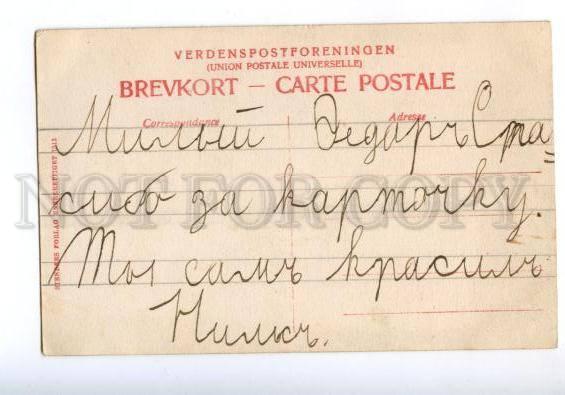 VERDENSPOSTFORENINGEN
(UNION POSTALE UNIVERSELLE)
BREVKORT — CARTE POSTALE
Correspondance Adresse
Милый Федаръ Спа=
сибо за карточку.
Ты самъ красилъ
STENDERS FORLAG 1913
NOT FOR COPY